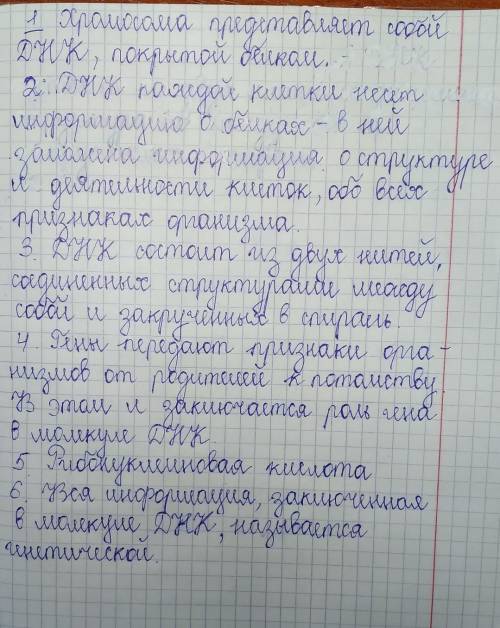 1 Хромосома представляет собой
ДНК, покрытой белком.
2. ДНК каждой клетки несет
информацию о белках - в ней
заложена информация о структуре
и деятельности клеток, обо всех
признаках организма.
3. ДНК состоит из двух нитей,
соединенных структурами между
собой и закрученных в спираль.
4. Гены передают признаки орга-
низмов от родителей к потомству.
В этом и заключается роль гена
в молекуле ДНК.
5. Рибонуклеиновая кислота
6. Вся информация, заключенная
в молекуле ДНК, называется
генетической.